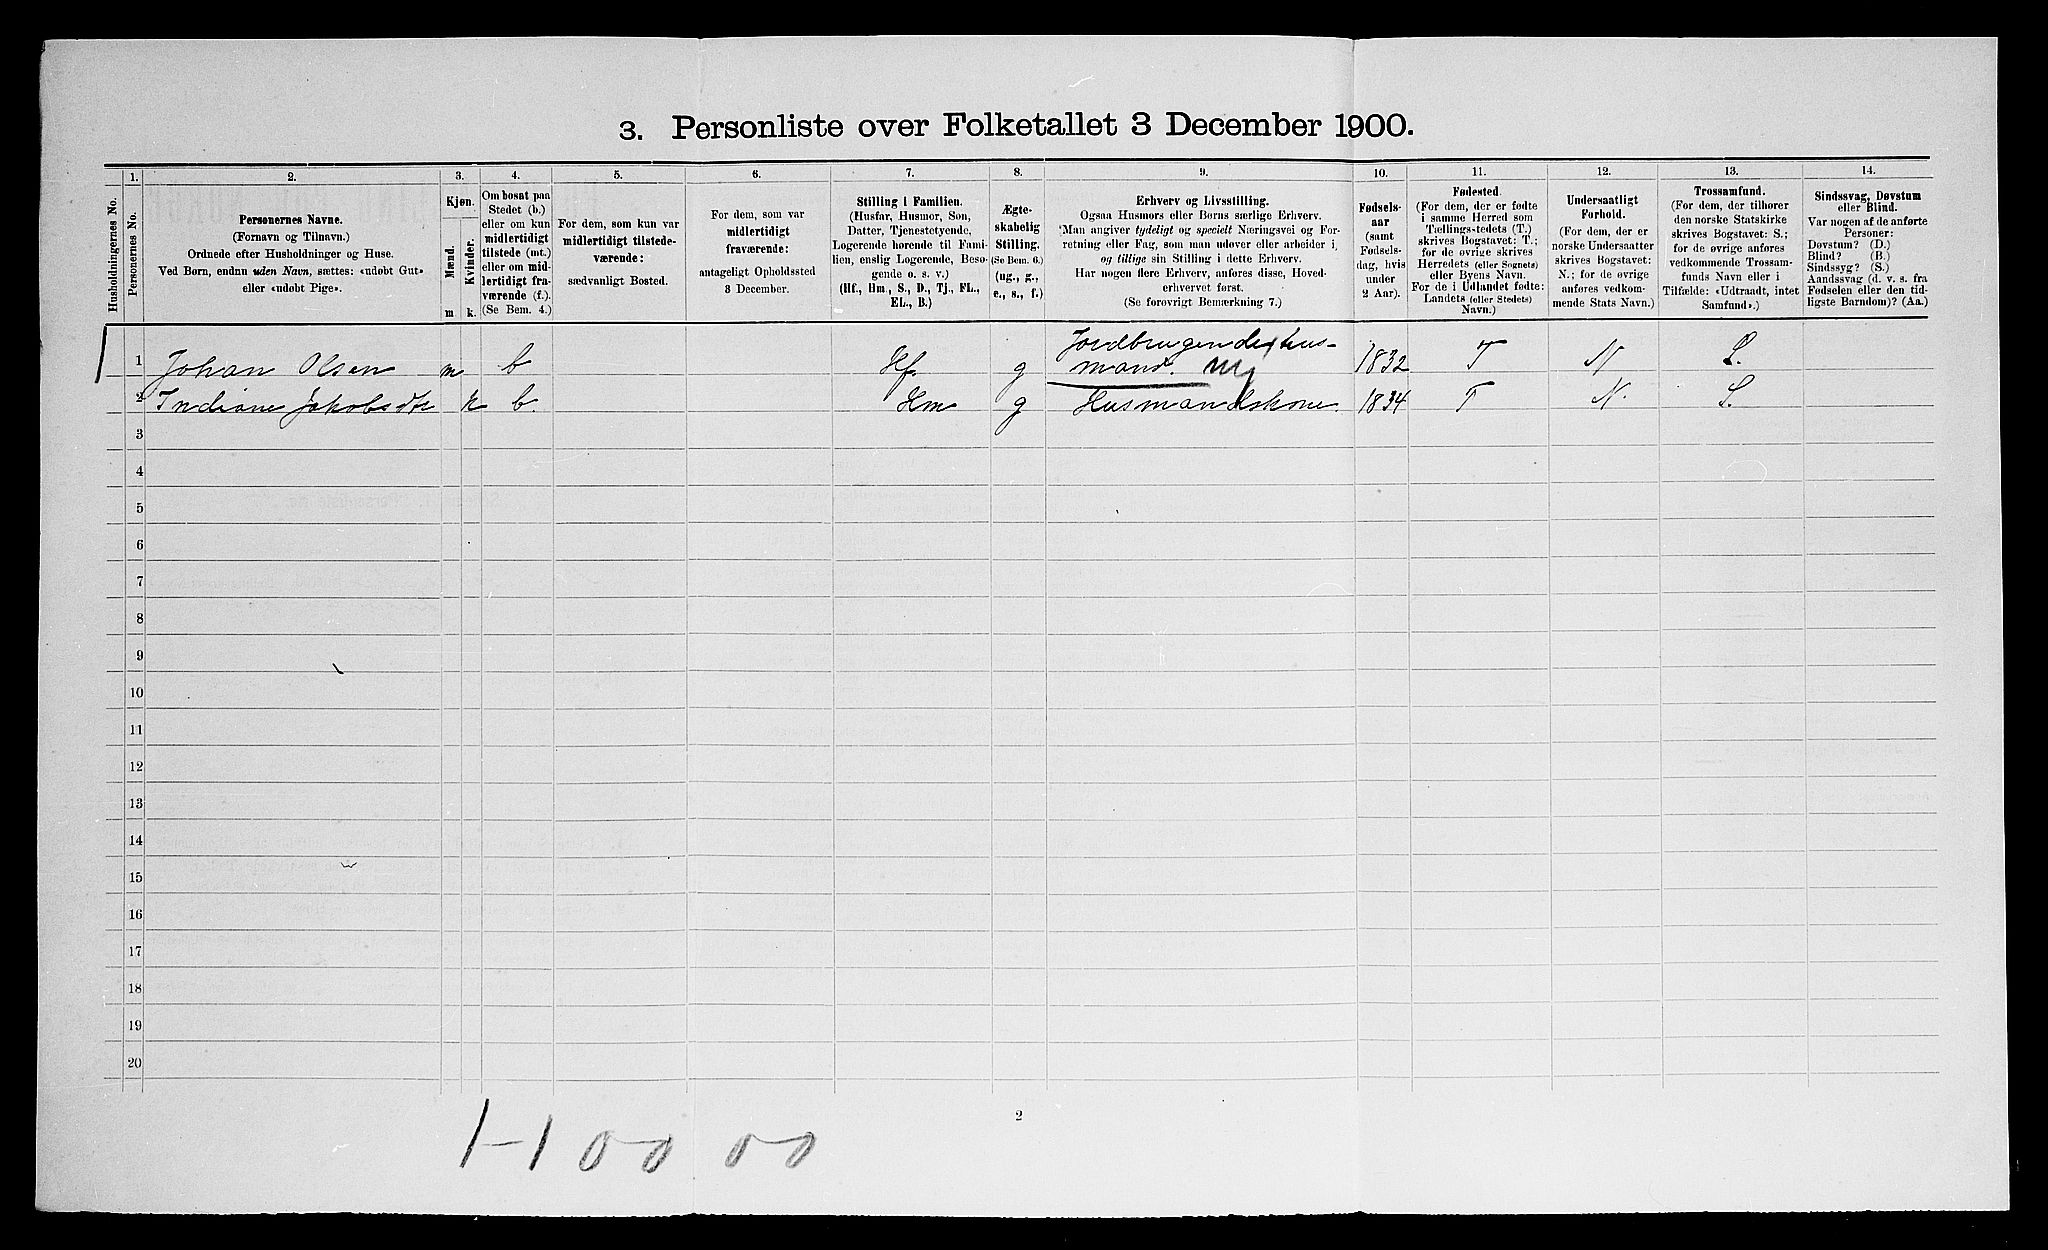 3. Personliste over Folketallet 3 December 1900.
1. 2. 3. 4. 5. 6. 7. 8. 9. 10. 11. 12. 13. 14.
Husholdningernes No.
Personernes No.
Personernes Navne.
(Fornavn og Tilnavn.)
Ordnede efter Husholdninger og Huse.
Ved Børn, endnu uden Navn, sættes: «udøbt Gut»
eller «udøbt Pige».
Kjøn.
Mænd.
Kvinder.
m k.
Om bosat paa
Stedet (b.)
eller om kun
midlertidigt
tilstede (mt.)
eller om mid-
lertidigt fra-
værende (f.).
(Se Bem. 4.)
For dem, som kun var
midlertidigt tilstede-
værende:
sædvanligt Bosted.
For dem, som var
midlertidigt
fraværende:
antageligt Opholdssted
3 December.
Stilling i Familien.
(Husfar, Husmor, Søn,
Datter, Tjenestetyende,
Logerende hørende til Fami-
lien, enslig Logerende, Besø-
gende o. s. v.)
(Hf., Hm., S., D., Tj., FL.,
EL., B.)
Ægte-
skabelig
Stilling.
(Se Bem. 6.)
(ug., g.,
e., s., f.)
Erhverv og Livsstilling.
Ogsaa Husmors eller Børns særlige Erhverv.
Man angiver tydeligt og specielt Næringsvei og For-
retning eller Fag, som man udøver eller arbeider i,
og tillige sin Stilling i dette Erhverv.
Har nogen flere Erhverv, anføres disse, Hoved-
erhvervet først.
(Se forøvrigt Bemærkning 7.)
Fødsels-
aar
(samt
Fødsels-
dag, hvis
under
2 Aar).
Fødested.
(For dem, der er fødte
i samme Herred som
Tællings-tedets (T.)
skrives Bogstavet: T.;
for de øvrige skrives
Herredets (eller Sognets)
eller Byens Navn.
For de i Udlandet fødte:
Landets (eller Stedets)
Navn.)
Undersaatligt
Forhold.
(For dem, der er
norske Undersaatter
skrives Bogstavet:
N.; for de øvrige
anføres vedkom-
mende Stats Navn.)
Trossamfund.
(For dem, der tilhører
den norske Statskirke
skrives Bogstavet: S.;
for de øvrige anføres
vedkommende Trossam-
funds Navn eller i
Tilfælde: «Udtraadt, intet
Samfund».)
Sindssvag, Døvstum
eller Blind.
Var nogen af de anførte
Personer:
Døvstum? (D.)
Blind? (B.)
Sindssyg? (S.)
Aandssvag (d. v. s. fra
Fødselen eller den tid-
ligste Barndom)? (Aa.)
1 Johan Olsen m b Hf. g Jordbrugende hus-
mand. 1832 T N S.
2 Indiane Jakobsdtr k b. Hm g Husmandskone. 1834 T N. S.
3
4
5
6
7
8
9
10
11
12
13
14
15
16
17
18
19
20
2
1-1 00 00